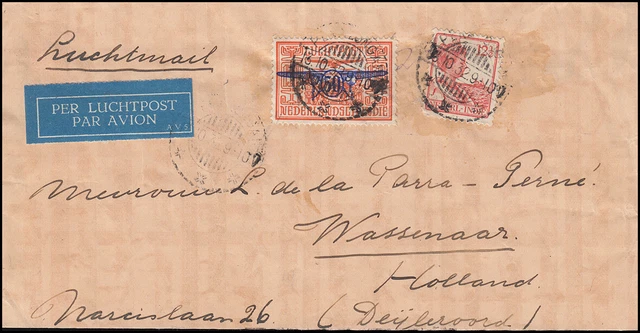 Luchtmail
PER LUCHTPOST
PAR AVION
12½
NEDERLANDSCH INDIE
Mevrouw L. de la Parra - Perné.
Wassenaar.
Holland.
Narcislaan 26 (Deijleroord)